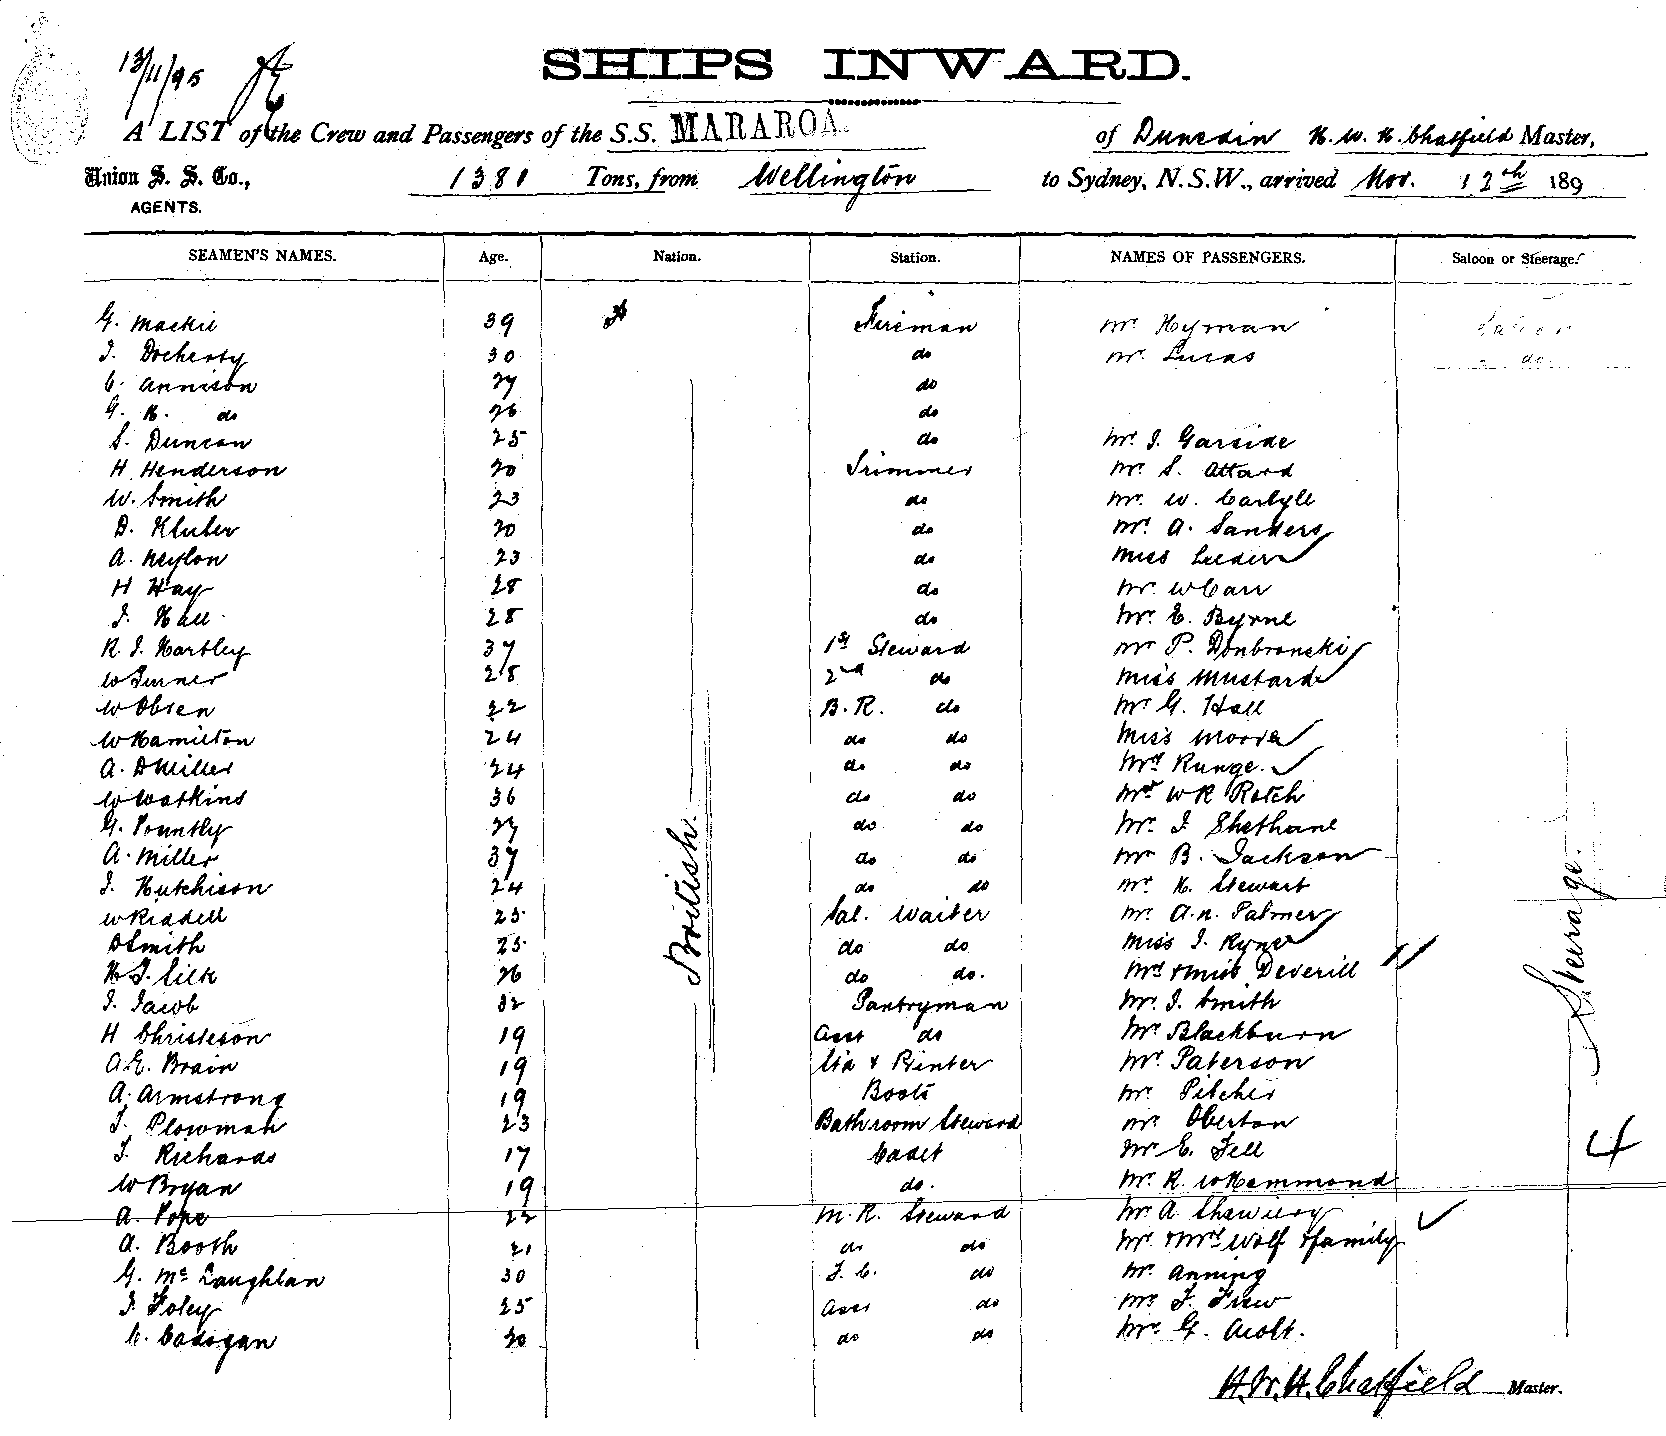 13/11/95
SHIPS INWARD.
A LIST of the Crew and Passengers of the S.S. MARAROA. of Dunedin H. W. H. Chatfield Master,
Union S. S. Co., 1381 Tons, from Wellington to Sydney, N.S.W., arrived Nov. 12th 189
AGENTS.
SEAMEN'S NAMES. Age. Nation. Station. NAMES OF PASSENGERS. Saloon or Steerage.
G. Mackie 39 Fireman Mr Hyman Saloon
J. Docherty 30 do Mr. Lucas do
C. Annison 27 do
G. H. do 26 do
S. Duncan 25 do Mr J. Garside
H. Henderson 20 Trimmer Mr. S. Attard
W. Smith 23 do Mr. W. Carlyle
D. 20 do Mr. A. Sanders
A. Neylon 23 do Miss
H Hay 28 do Mr. W Carr
J. Hall 28 do Mr. E. Byrne
R. J. Hartley 37 1st Steward Mr P. Donbronski
W Turner 28 2nd do Miss Mustard
W Obren 22 B. R. do Mr G. Hall
W Hamilton 24 do do Miss Moore
A. D Miller 24 do do Mrs Runge.
W Watkins 36 do do Mr W R Rotch
G. Pountly 27 do do Mr. J.
A. Miller 37 do do Mr B. Jackson
J. Hutchison 24 do do Mr H. Stewart
W Riddell 25 Sal. Waiter Mr. A. N. Palmer
D Smith 25 do do Miss J.
H J. Silk 26 do do. Mrs & Miss Deverill
J. Jacob 32 Pantryman Mr. J. Smith
H Christeson 19 Asst do Mr Blackburn
A. E. Brain 19 & Printer Mr Paterson
A. Armstrong 19 Boots Mr. Pitcher
J. Plowman 23 Bathroom Steward Mr Oberton
J. Richards 17 Cadet Mr E. Fell
W Bryan 19 do. Mr. R. W Hammond
A. Pope 22 M. R. Steward Mr A
A. Booth 21 do do Mr. & Mrs Wolf & family
G. Mc Laughlan 30 F. C. do Mr Anning
J. Foley 25 Asst do Mr F. Frew
C. Cadogan 20 do do Mr. G.
British.
Steerage.
4
H. W. H. Chatfield Master.